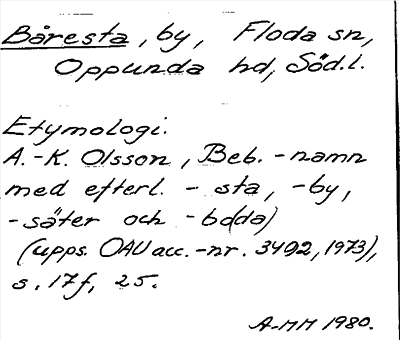 Båresta, by, Floda sn,
Oppunda hd, Söd.l.
Etymologi.
A.-K. Olsson, Beb.-namn
med efterl. - sta, -by,
-säter och -bo(da)
(upps. OAU acc.-nr. 3492, 1973),
s. 17f, 25.
A-MM 1980.